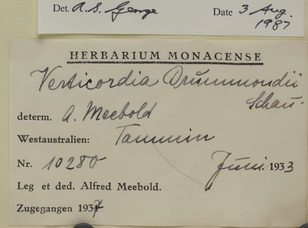 Det. A.S. George Date 3 Aug. 1987
HERBARIUM MONACENSE
Verticordia Drummondii
Schau
determ. A. Meebold
Westaustralien: Tammin
Nr. 10280 Juni 1933
Leg et ded. Alfred Meebold.
Zugegangen 1937